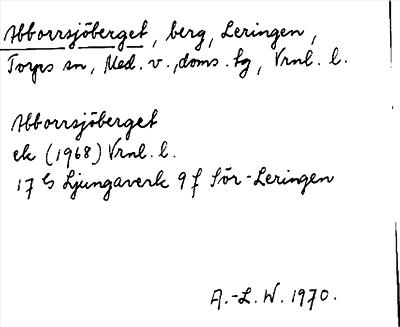 Abborrsjöberget, berg, Leringen,
Torps sn, Med. v., doms. tg, Vrnl. l.
Abborrsjöberget
ek (1968) Vrnl. l.
17 G Ljungaverk 9 f Sör-Leringen
A.-L. W. 1970.